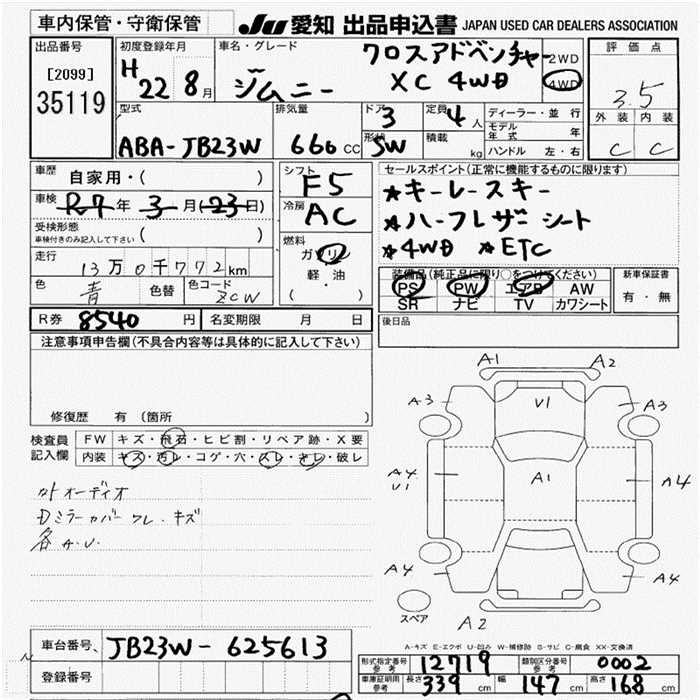 車内保管・守衛保管
JU 愛知 出品申込書 JAPAN USED CAR DEALERS ASSOCIATION
出品番号
[2099]
35119
初度登録年月
H 22 8月
車名・グレード
クロスアドベンチャー
ジムニー XC 4WD
2WD
4WD
評価点
3.5
外装 内装
C C
型式
ABA-JB23W
排気量
660 cc
ドア 3
形状 SW
定員 4人
積載 kg
ディーラー・並行
モデル年式 年
ハンドル 左・右
車歴 自家用・( )
車検 R7年 3月(23日)
受検形態
車検付きのみ記入して下さい ( )
走行 13万0千772km
色 青 色替 色コード ZCW
シフト F5
冷房 AC
燃料
ガソリン
軽・油
( ・ )
セールスポイント(正常に機能するものに限ります)
★キーレスキー
★ハーフレザーシート
★4WD ★ETC
装備品(純正品に限り○をつけてください)
PS PW エアB AW
SR ナビ TV カワシート
新車保証書
有・無
R券 8540 円 名変期限 月 日
後日品
注意事項申告欄(不具合内容等は具体的に記入して下さい)
修復歴 有(箇所
検査員記入欄
FW キズ・飛石・ヒビ割・リペア跡・X要
内装 キズ・汚レ・コゲ・穴・スレ・キレ・破レ
オーディオ
Dミラーカバー ワレ・キズ
各A.U.
A1 A2
A3 V1 A3
A4 A1 A4
U1
A4 A4
A2
スペア
A-キズ E-エクボ U-凹み W-補修跡 S-サビ C-腐食 XX-交換済
車台番号 JB23W-625613
登録番号
形式指定番号 参考 12719 類別区分番号 参考 0002
車庫証明用 参考 長さ 339 cm 幅 147 cm 高さ 168 cm